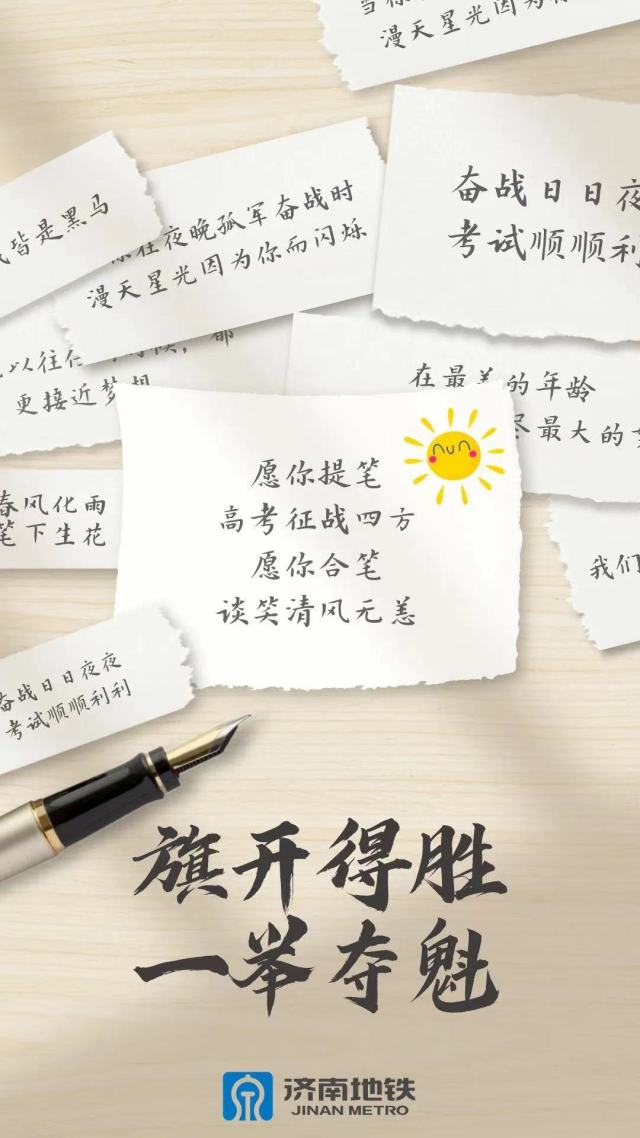 漫天星光因为你
奋战日日夜
考试顺顺利
皆是黑马
在夜晚孤军奋战时
漫天星光因为你而闪烁
以往
更接近梦想
在最美的年龄
尽最大的
春风化雨
笔下生花
愿你提笔
高考征战四方
愿你合笔
谈笑清风无恙
我们
奋战日日夜夜
考试顺顺利利
旗开得胜
一举夺魁
济南地铁
JINAN METRO